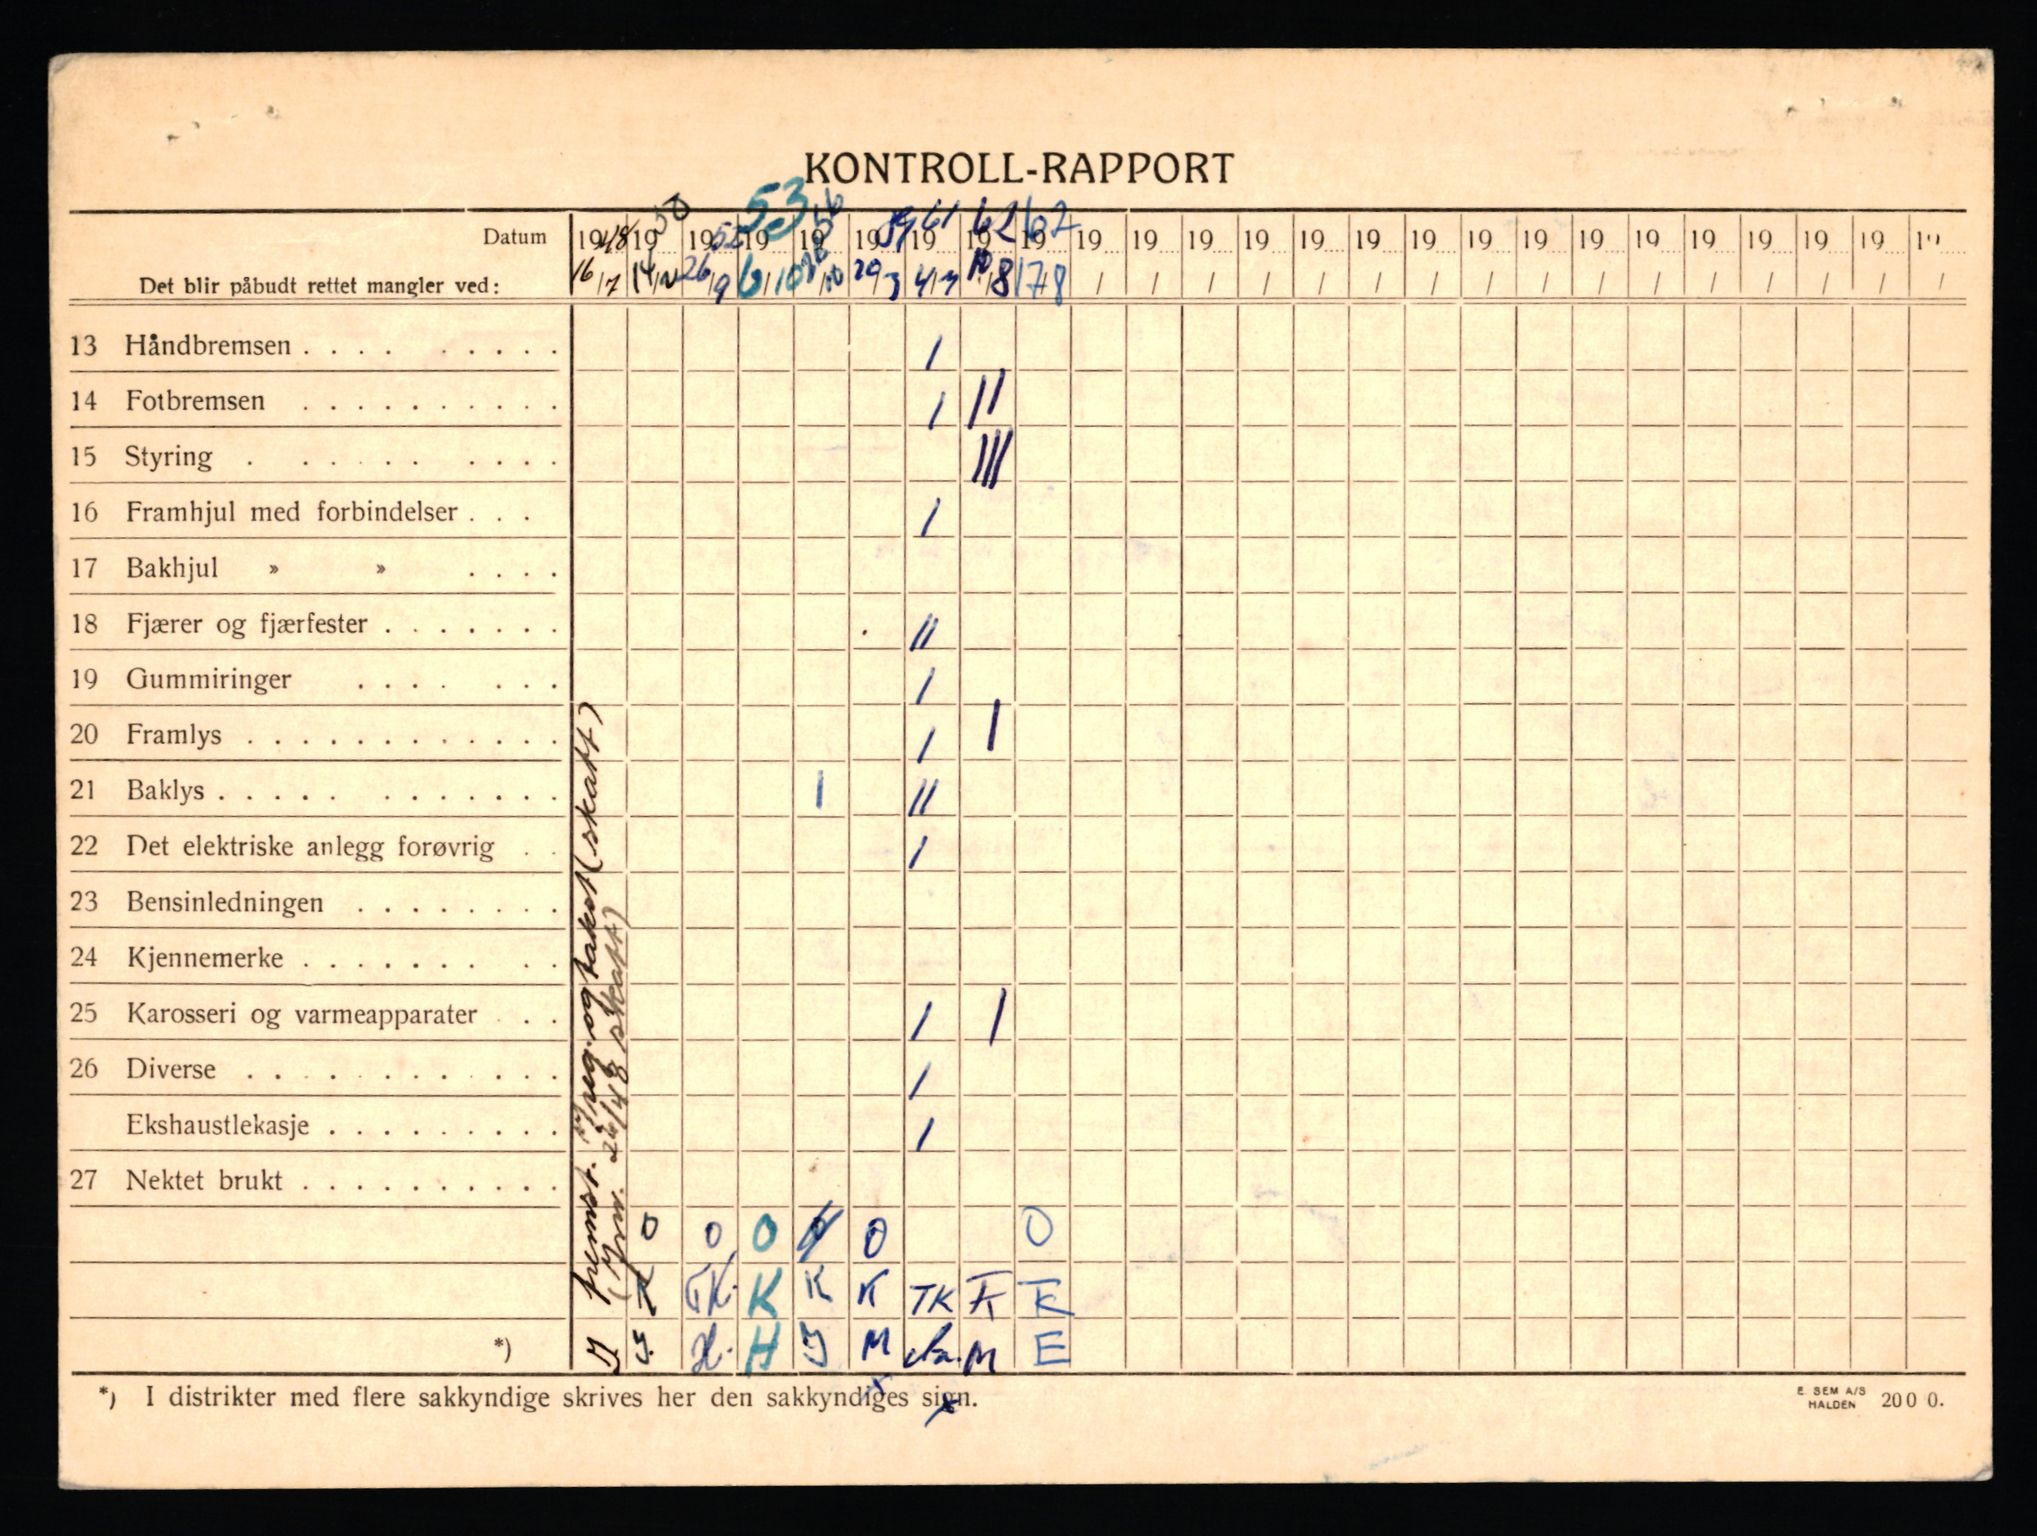 KONTROLL-RAPPORT
Datum 1948 1950 1952 1953 1956 1959 1961 1962 1962 19 19 19 19 19 19 19 19 19 19 19 19 19 19 19 19
Det blir påbudt rettet mangler ved: 16/7 14/2 26/9 6/10 /10 20/3 4/7 10/8 17/8 / / / / / / / / / / / / / / / /
13 Håndbremsen . . . . . . . . . /
14 Fotbremsen . . . . . . . . . . / //
15 Styring . . . . . . . . . . ///
16 Framhjul med forbindelser . . . /
17 Bakhjul » » . . . .
18 Fjærer og fjærfester . . . . . . . //
19 Gummiringer . . . . . . . /
20 Framlys . . . . . . . . . . . . / /
21 Baklys . . . . . . . . . . . . / //
22 Det elektriske anlegg forøvrig . . /
23 Bensinledningen . . . . . . . .
24 Kjennemerke . . . . . . . . .
25 Karosseri og varmeapparater . . . / /
26 Diverse . . . . . . . . . . . /
Ekshaustlekasje . . . . . . . . . . /
27 Nektet brukt . . . . . . . . . .
fremst. reg. og takst (skatt)
26/48 skatt)
0 0 0 0 0 0
K TK. K K K TK TK TK
J J. H. H J M M E
*)
*) I distrikter med flere sakkyndige skrives her den sakkyndiges sign.
E. SEM A/S
HALDEN 2000.